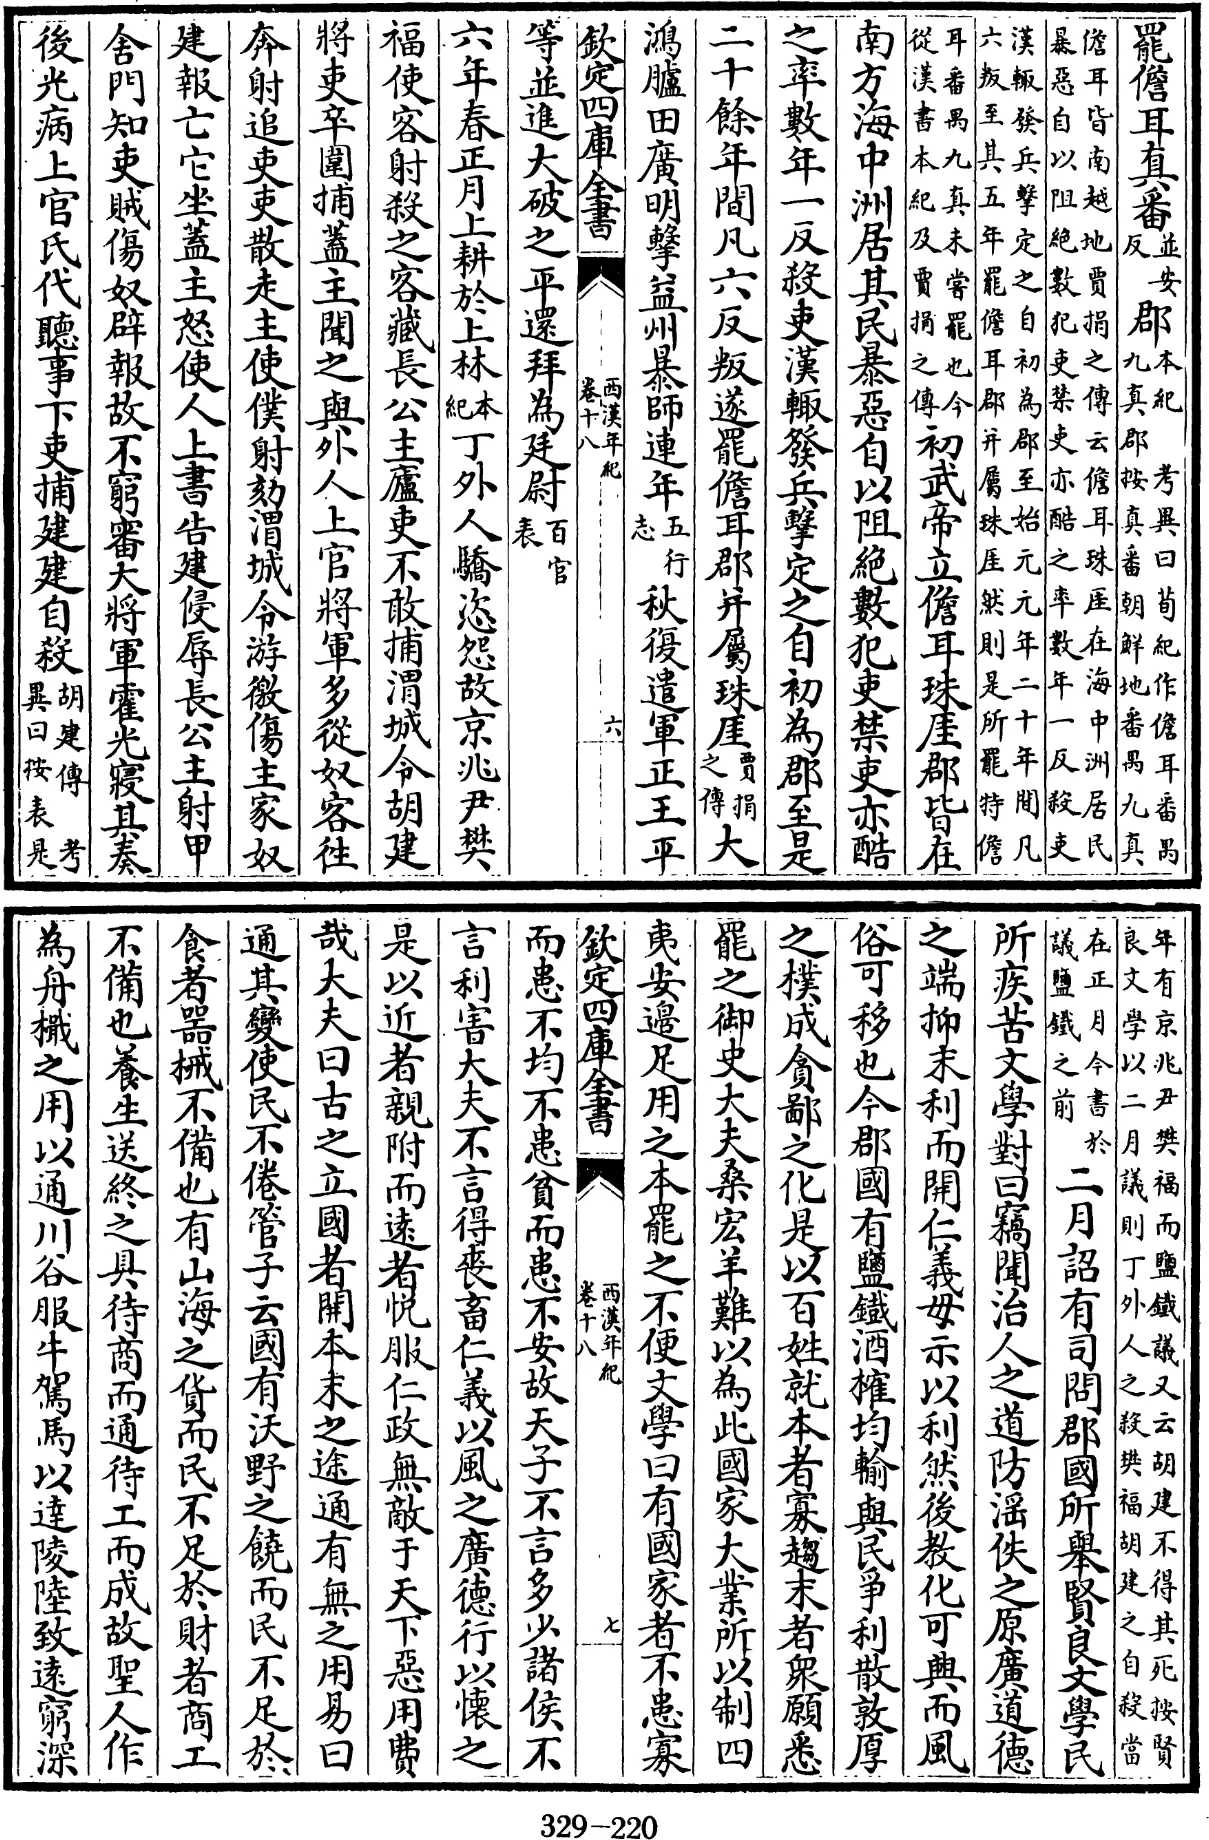 罷儋耳真番並安反郡本紀 考異曰荀紀作儋耳番禺九真郡按真番朝鮮地番禺九真
儋耳皆南越地賈捐之傳云儋耳珠厓在海中洲居民暴惡自以阻絶數犯吏禁吏亦酷之率數年一反殺吏
漢輒發兵擊定之自初為郡至始元元年二十年間凡六叛至其五年罷儋耳郡并屬珠厓然則是所罷特儋
耳番禺九真未嘗罷也今從漢書本紀及賈捐之傳初武帝立儋耳珠厓郡皆在
南方海中洲居其民暴惡自以阻絶數犯吏禁吏亦酷
之率數年一反殺吏漢輒發兵擊定之自初為郡至是
二十餘年間凡六反叛遂罷儋耳郡并屬珠厓賈捐之傳大
鴻臚田廣明擊益州暴師連年五行志秋復遣軍正王平
欽定四庫全書 西漢年紀卷十八 六
等並進大破之平還拜為廷尉百官表
六年春正月上耕於上林本紀丁外人驕恣怨故京兆尹樊
福使客射殺之客藏長公主廬吏不敢捕渭城令胡建
將吏卒圍捕蓋主聞之與外人上官將軍多從奴客往
奔射追吏吏散走主使僕射劾渭城令游徼傷主家奴
建報亡它坐蓋主怒使人上書告建侵辱長公主射甲
舍門知吏賊傷奴辟報故不窮審大將軍霍光寢其奏
後光病上官氏代聽事下吏捕建建自殺胡建傳 考異曰按表是
年有京兆尹樊福而鹽鐵議又云胡建不得其死按賢良文學以二月議則丁外人之殺樊福胡建之自殺當
在正月今書於議鹽鐵之前二月詔有司問郡國所舉賢良文學民
所疾苦文學對曰竊聞治人之道防淫佚之原廣道德
之端抑末利而開仁義毋示以利然後教化可興而風
俗可移也今郡國有鹽鐵酒榷均輸與民爭利散敦厚
之樸成貪鄙之化是以百姓就本者寡趨末者衆願悉
罷之御史大夫桑宏羊難以為此國家大業所以制四
夷安邊足用之本罷之不便文學曰有國家者不患寡
欽定四庫全書 西漢年紀卷十八 七
而患不均不患貧而患不安故天子不言多少諸侯不
言利害大夫不言得喪畜仁義以風之廣德行以懷之
是以近者親附而遠者悅服仁政無敵于天下惡用費
哉大夫曰古之立國者開本末之途通有無之用易曰
通其變使民不倦管子云國有沃野之饒而民不足於
食者器械不備也有山海之貨而民不足於財者商工
不備也養生送終之具待商而通待工而成故聖人作
為舟檝之用以通川谷服牛駕馬以達陵陸致遠窮深
329-220